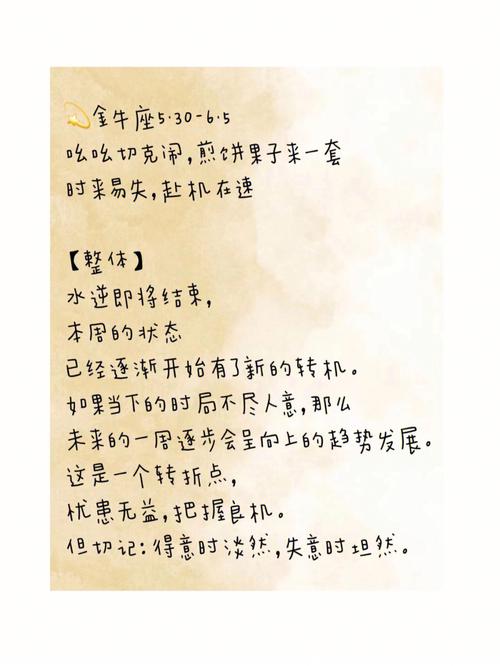 金牛座5·30-6·5
吆吆切克闹,煎饼果子来一套
时来易失,赴机在速
【整体】
水逆即将结束,
本周的状态
已经逐渐开始有了新的转机。
如果当下的时局不尽人意,那么
未来的一周逐步会呈向上的趋势发展。
这是一个转折点,
忧患无益,把握良机。
但切记:得意时淡然,失意时坦然。